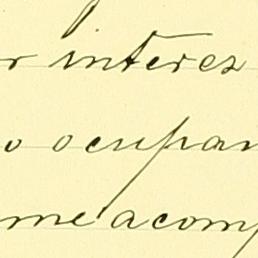 r interes
o ocupan
me acomp